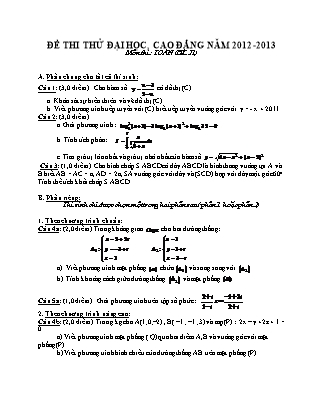 ĐỀ THI THỬ ĐẠI HỌC, CAO ĐẲNG NĂM 2012-2013
Môn thi: TOÁN (ĐỀ II)
A. Phần chung cho tất cả thí sinh:
Câu 1: (3,0 điểm) Cho hàm số có đồ thị (C)
a. Khảo sát sự biến thiên và vẽ đồ thị (C)
b. Viết phương trình tiếp tuyến với (C) biết tiếp tuyến vuông góc với y = - x + 2011
Câu 2: (3,0 điểm)
a. Giải phương trình:
b. Tính tích phân:
c. Tìm giá trị lớn nhất và giá trị nhỏ nhất của hàm số
Câu 3: (1,0 điểm) Cho hình chóp S.ABCD có đáy ABCD là hình thang vuông tại A và
B biết AB = AC = a, AD = 2a, SA vuông góc với đáy và (SCD) hợp với đáy một góc 60°
Tính thể tích khối chóp S.ABCD
B. Phần riêng:
Thí sinh chỉ được chọn một trong hai phần sau (phần 1 hoặc phần 2)
1. Theo chương trình chuẩn:
Câu 4a: (2,0 điểm) Trong không gian cho hai đường thẳng:
a) Viết phương trình mặt phẳng chứa và song song với
b) Tính khoảng cách giữa đường thẳng và mặt phẳng
Câu 5a: (1,0 điểm) Giải phương trình trên tập số phức:
2. Theo chương trình nâng cao:
Câu 4b: (2,0 điểm) Trong kg cho A(1,0,-2), B( -1, -1, 3) và mp(P) : 2x – y + 2z + 1 =
0
a) Viết phương trình mặt phẳng ( Q) qua hai điểm A,B và vuông góc với mặt
phẳng (P)
b) Viết phương trình hình chiếu của đường thẳng AB trên mặt phẳng (P)